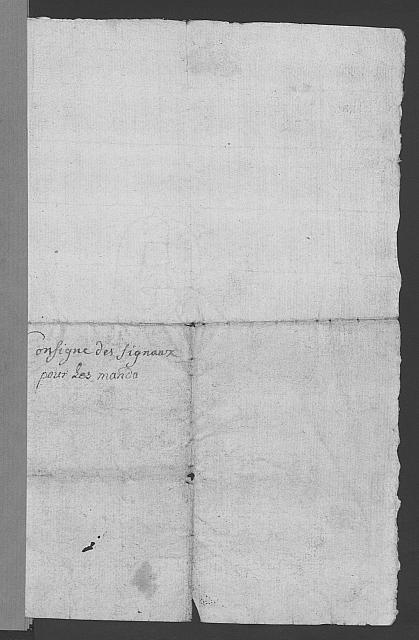 Consigne des signaux
pour Les mando